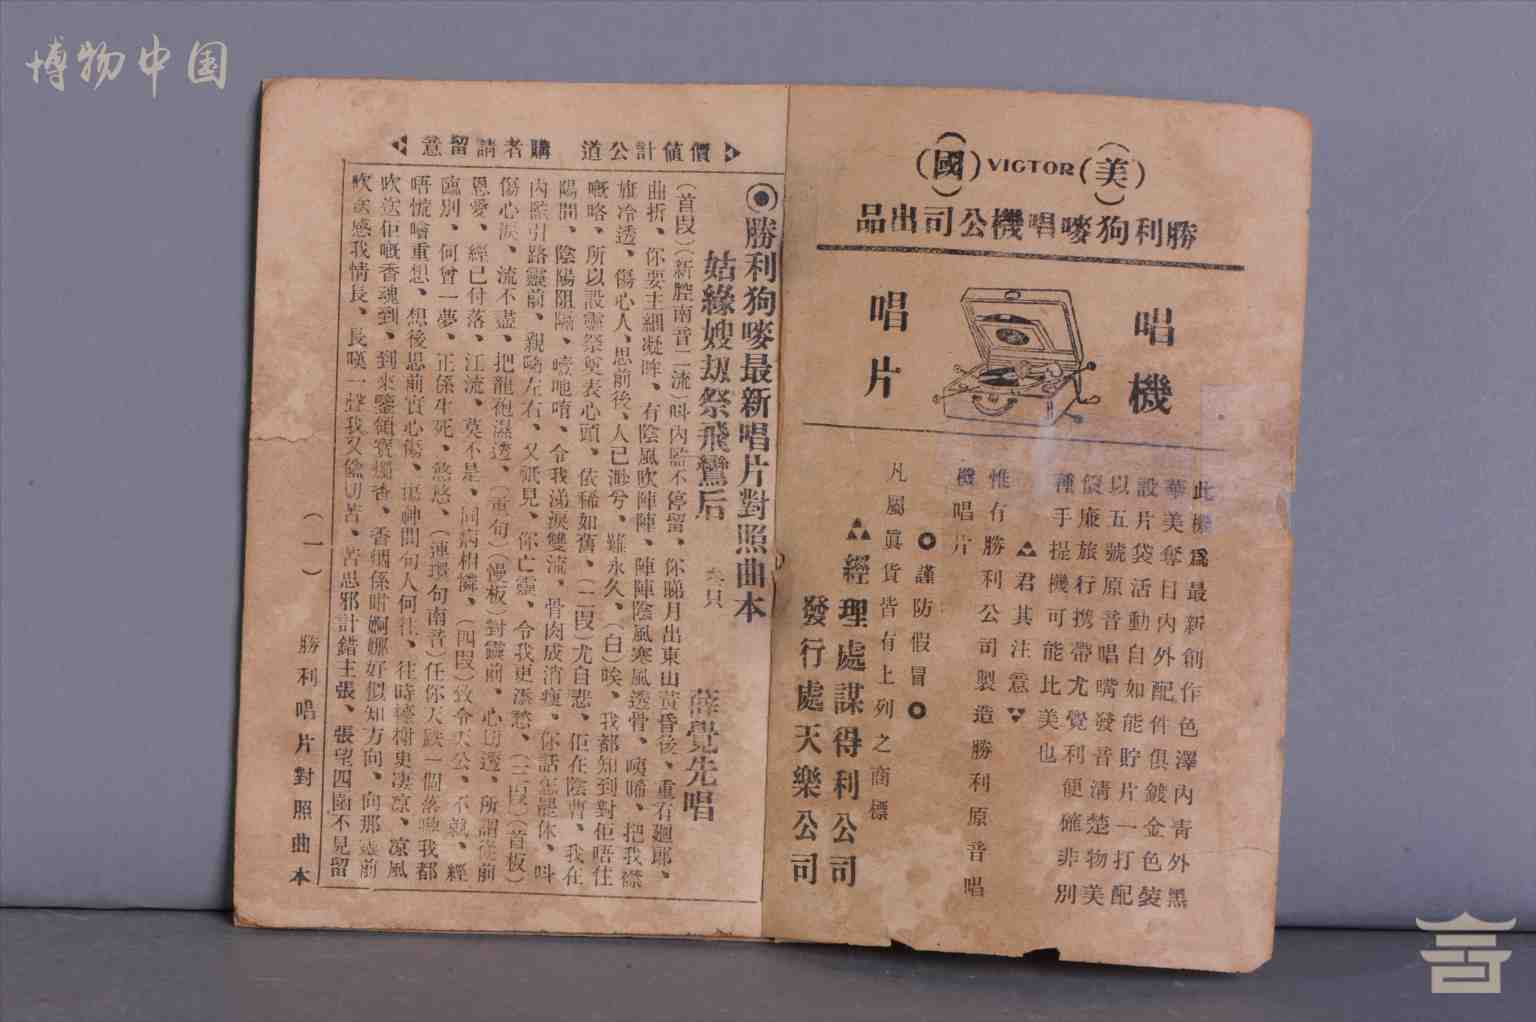 博物中国
(美) VICTOR (國)
勝利狗嘜唱機公司出品
唱機
唱片
此機爲最新創作色澤內青外黑
華美奪目內外配件俱鍍金色裝
設片袋活動自如能貯片一打配
以五號原音唱嘴發音清楚物美
價廉旅行携帶尤覺利便確非別
種手提機可能比美也
君其注意
惟有勝利公司製造勝利原音唱
機唱片
謹防假冒
凡屬眞貨皆有上列之商標
經理處謀得利公司
發行處天樂公司
價值計公道 購者請留意
勝利狗嘜最新唱片對照曲本
姑緣嫂刼祭飛鸞后 薛覺先唱
(首段)(新腔南音二流)呌內監不停留、你睇月出東山黃昏後、重有廻郎、
曲折、你要主細凝眸、有陰風吹陣陣、陣陣陰風寒風透骨、咦唏、把我襟
旅冷透、傷心人、思前後、人已渺兮、雖永久、(白)唉、我都知到對佢唔住
嘅咯、所以設靈祭奠表心頭、依稀如舊、(二段)尤自悲、佢在陰曹、我在
陽間、陰陽阻隔、噫吔唷、令我涕淚雙流、骨肉成消瘦、你話怎罷休、呌
內監引路靈前、親喻左右、又祗見、你亡靈、令我更添愁、(三段)(首板)
傷心淚、流不盡、把龍袍濕透、(重句)(慢板)對靈前、心切透、所謂從前
恩愛、經已付落、江流、莫不是、同病相憐、(四段)致令天公、不就、經
臨別、何曾一夢、正係生死、悠悠、(連環句南音)任你天跌一個落嚟我都
唔慌嚕重想、想後思前實心傷、鬼神問句人何往、往時臺榭更凄凉、凉風
吹送佢嘅香魂到、到來鑒領寶烟香、香烟係咁婀娜好似知方向、向那靈前
吹送感我情長、長嘆一聲我又倫切苦、苦思邪計錯主張、張望四圍不見留
(一) 勝利唱片對照曲本